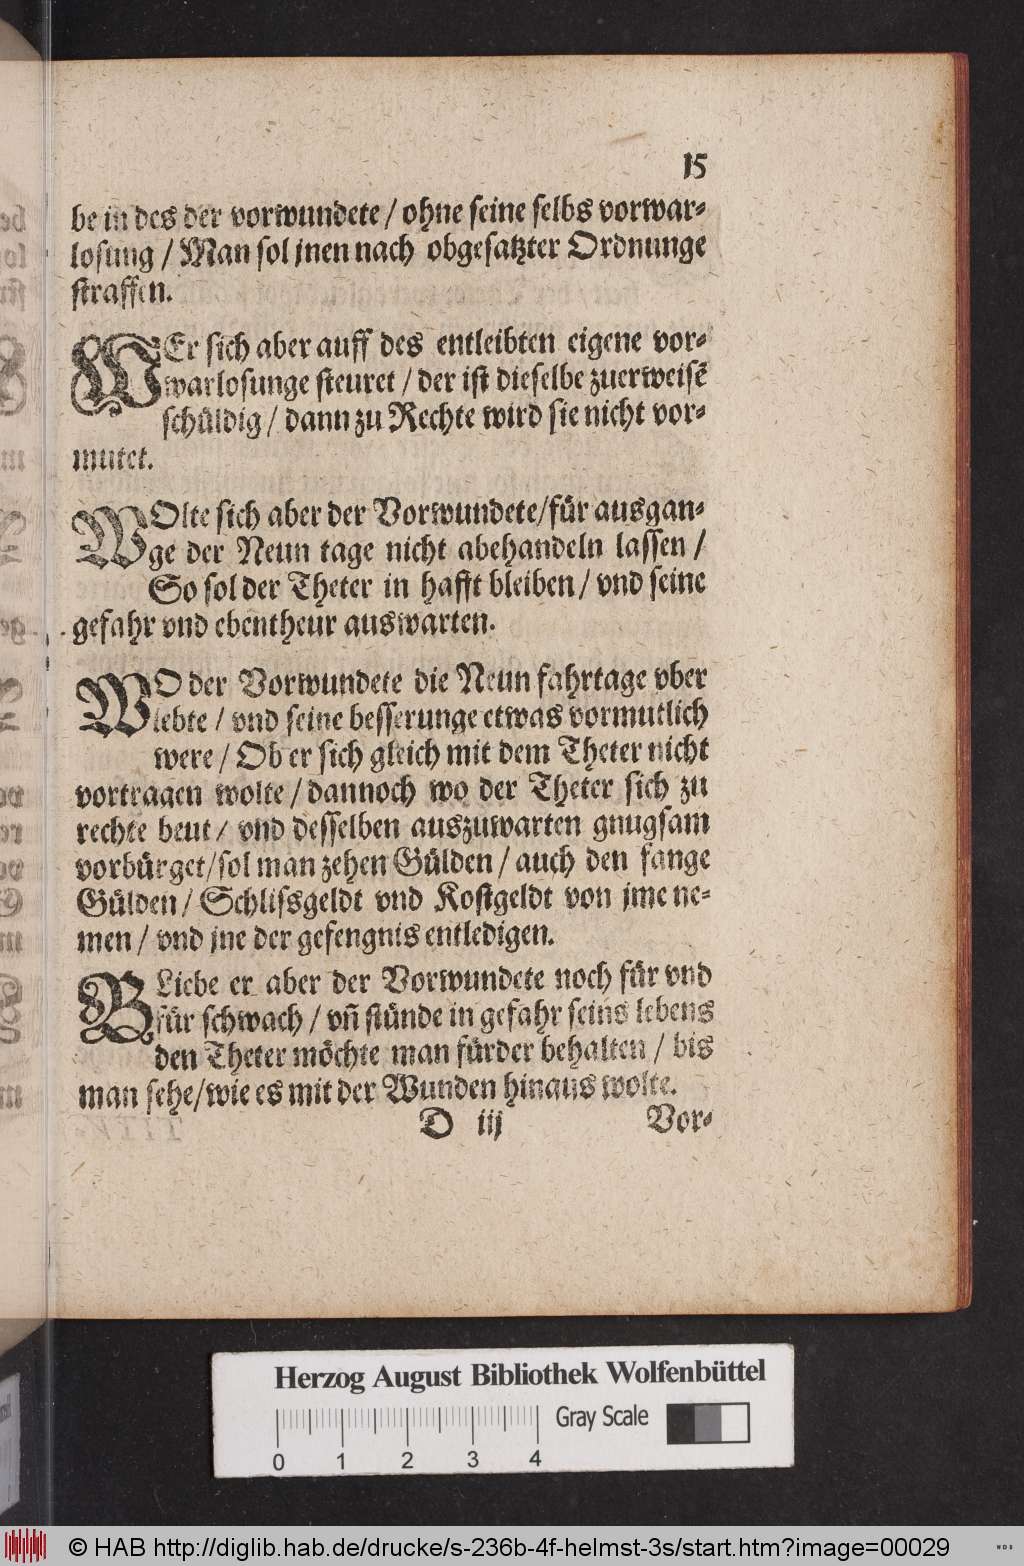 15
be in des der vorwundete / ohne seine selbs vorwar-
losung / Man sol jnen nach obgesatzter Ordnunge
straffen.
WEr sich aber auff des entleibten eigene vor-
warlosunge steuret / der ist dieselbe zuerweisẽ
schüldig / dann zu Rechte wird sie nicht vor-
mutet.
WOlte sich aber der Vorwundete/für ausgan-
ge der Neun tage nicht abehandeln lassen /
So sol der Theter in hafft bleiben / vnd seine
gefahr vnd ebentheur auswarten.
WO der Vorwundete die Neun fahrtage vber
lebte / vnd seine besserunge etwas vormutlich
were / Ob er sich gleich mit dem Theter nicht
vortragen wolte / dannoch wo der Theter sich zu
rechte beut / vnd desselben auszuwarten gnugsam
vorbürget/sol man zehen Gülden / auch den fange
Gülden / Schlissgeldt vnd Kostgeldt von jme ne-
men / vnd jne der gefengnis entledigen.
BLiebe er aber der Vorwundete noch für vnd
für schwach / vñ stünde in gefahr seins lebens
den Theter möchte man fürder behalten / bis
man sehe/wie es mit der Wunden hinaus wolte.
D iij Vor-
Herzog August Bibliothek Wolfenbüttel
Gray Scale
0 1 2 3 4
© HAB http://diglib.hab.de/drucke/s-236b-4f-helmst-3s/start.htm?image=00029